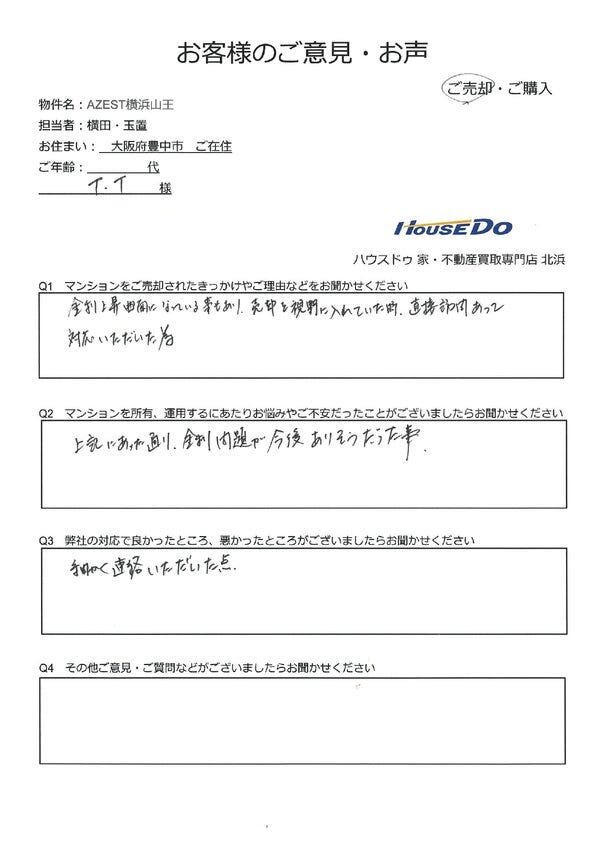 お客様のご意見・お声
ご売却・ご購入
物件名：AZEST横浜山王
担当者：横田・玉置
お住まい： 大阪府豊中市 ご在住
ご年齢： 代
T.T 様
HOUSEDO
ハウスドゥ 家・不動産買取専門店 北浜
Q1 マンションをご売却されたきっかけやご理由などをお聞かせください
金利上昇曲面になっている事もあり、売却を視野に入れていた時、直接訪問あって
対応いただいた為
Q2 マンションを所有、運用するにあたりお悩みやご不安だったことがございましたらお聞かせください
上記にあった通り、金利問題が今後ありそうだった事.
Q3 弊社の対応で良かったところ、悪かったところがございましたらお聞かせください
細かく連絡いただいた点.
Q4 その他ご意見・ご質問などがございましたらお聞かせください